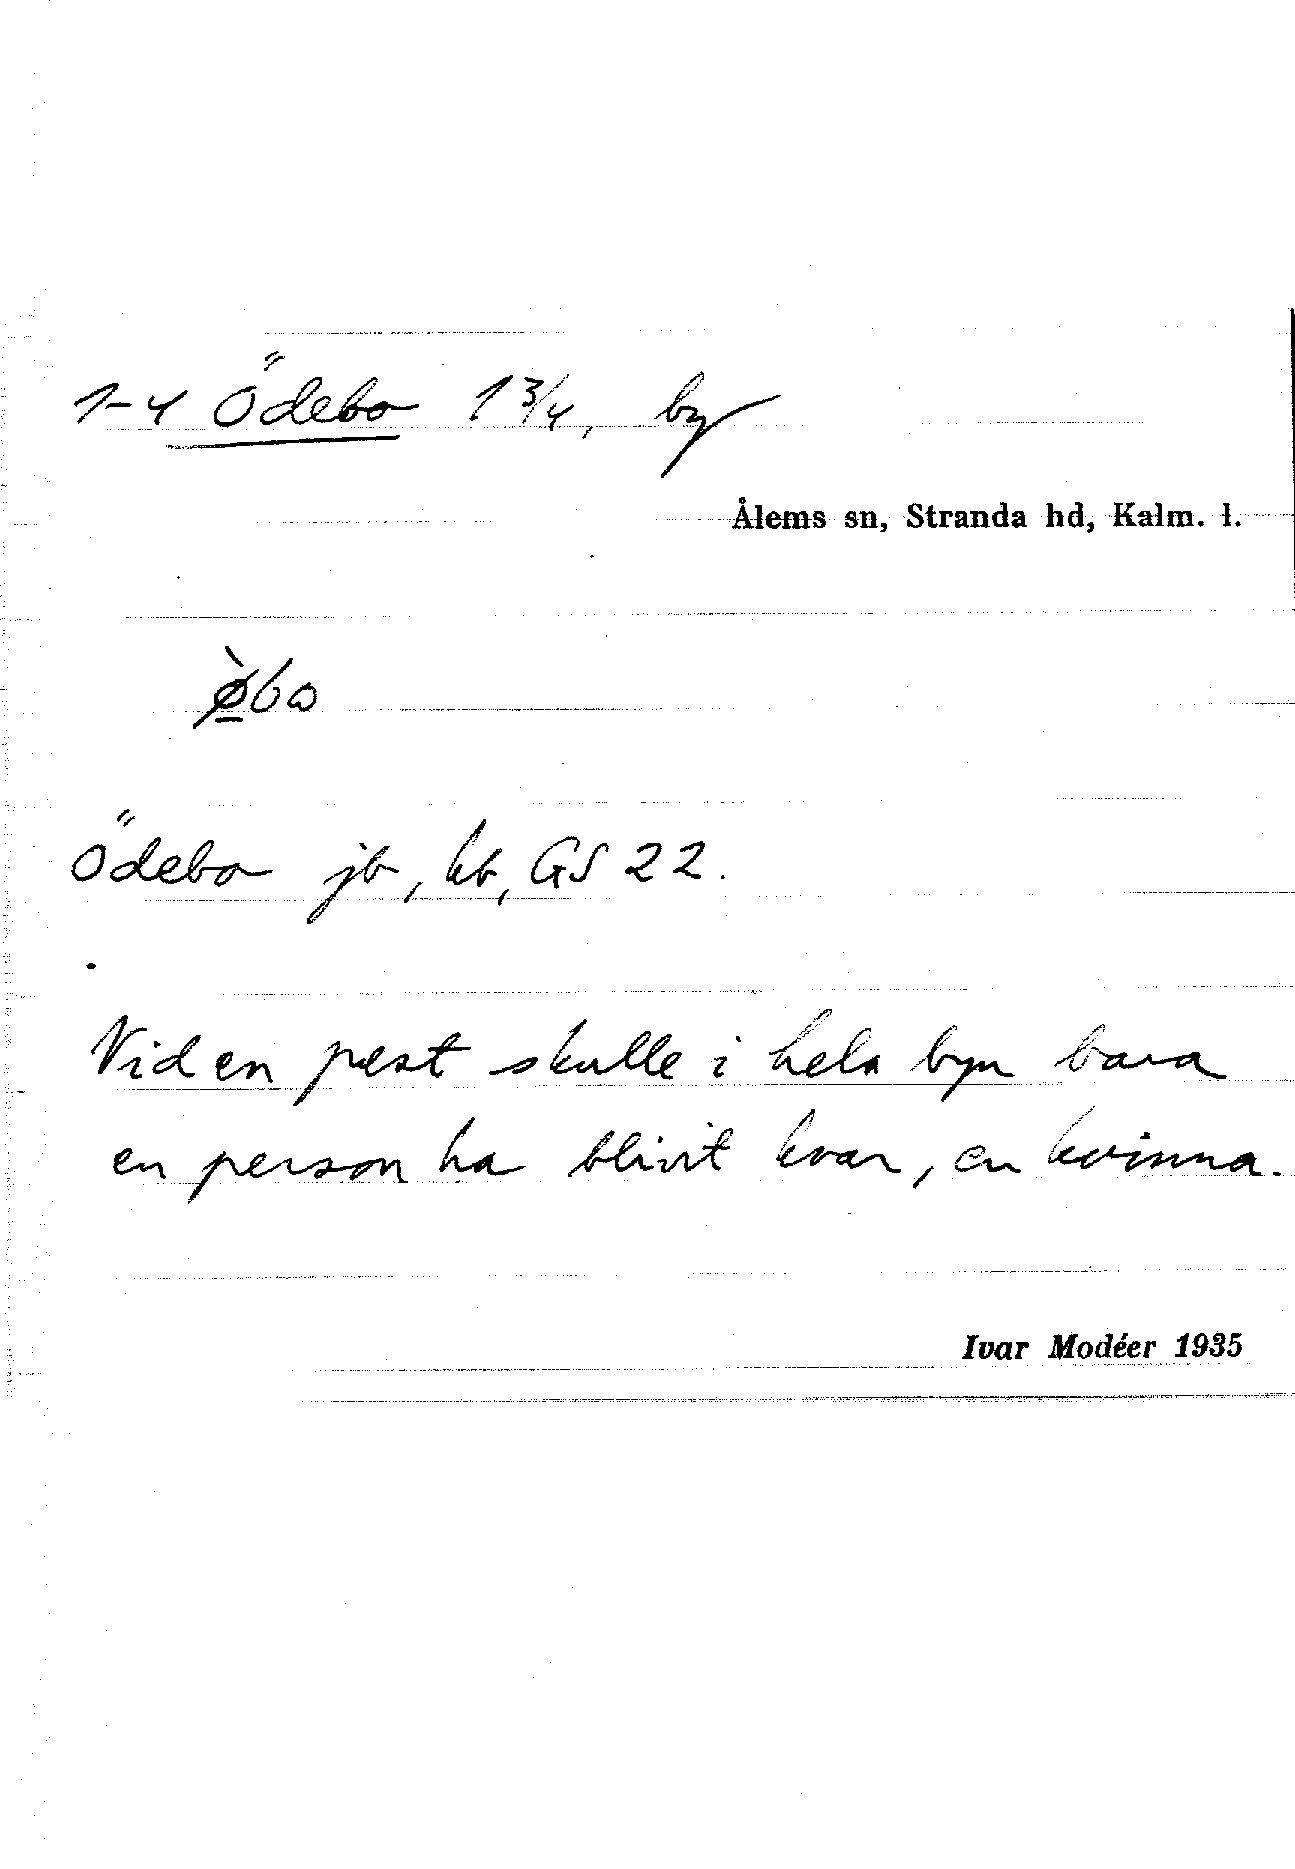 1-4 Ödebo 1 3/4, by
Ålems sn, Stranda hd, Kalm. l.
ø̲̀bo
Ödebo jb, kb, GS 22.
Vid en pest skulle i hela byn bara
en person ha blivit kvar, en kvinna.
Ivar Modéer 1935